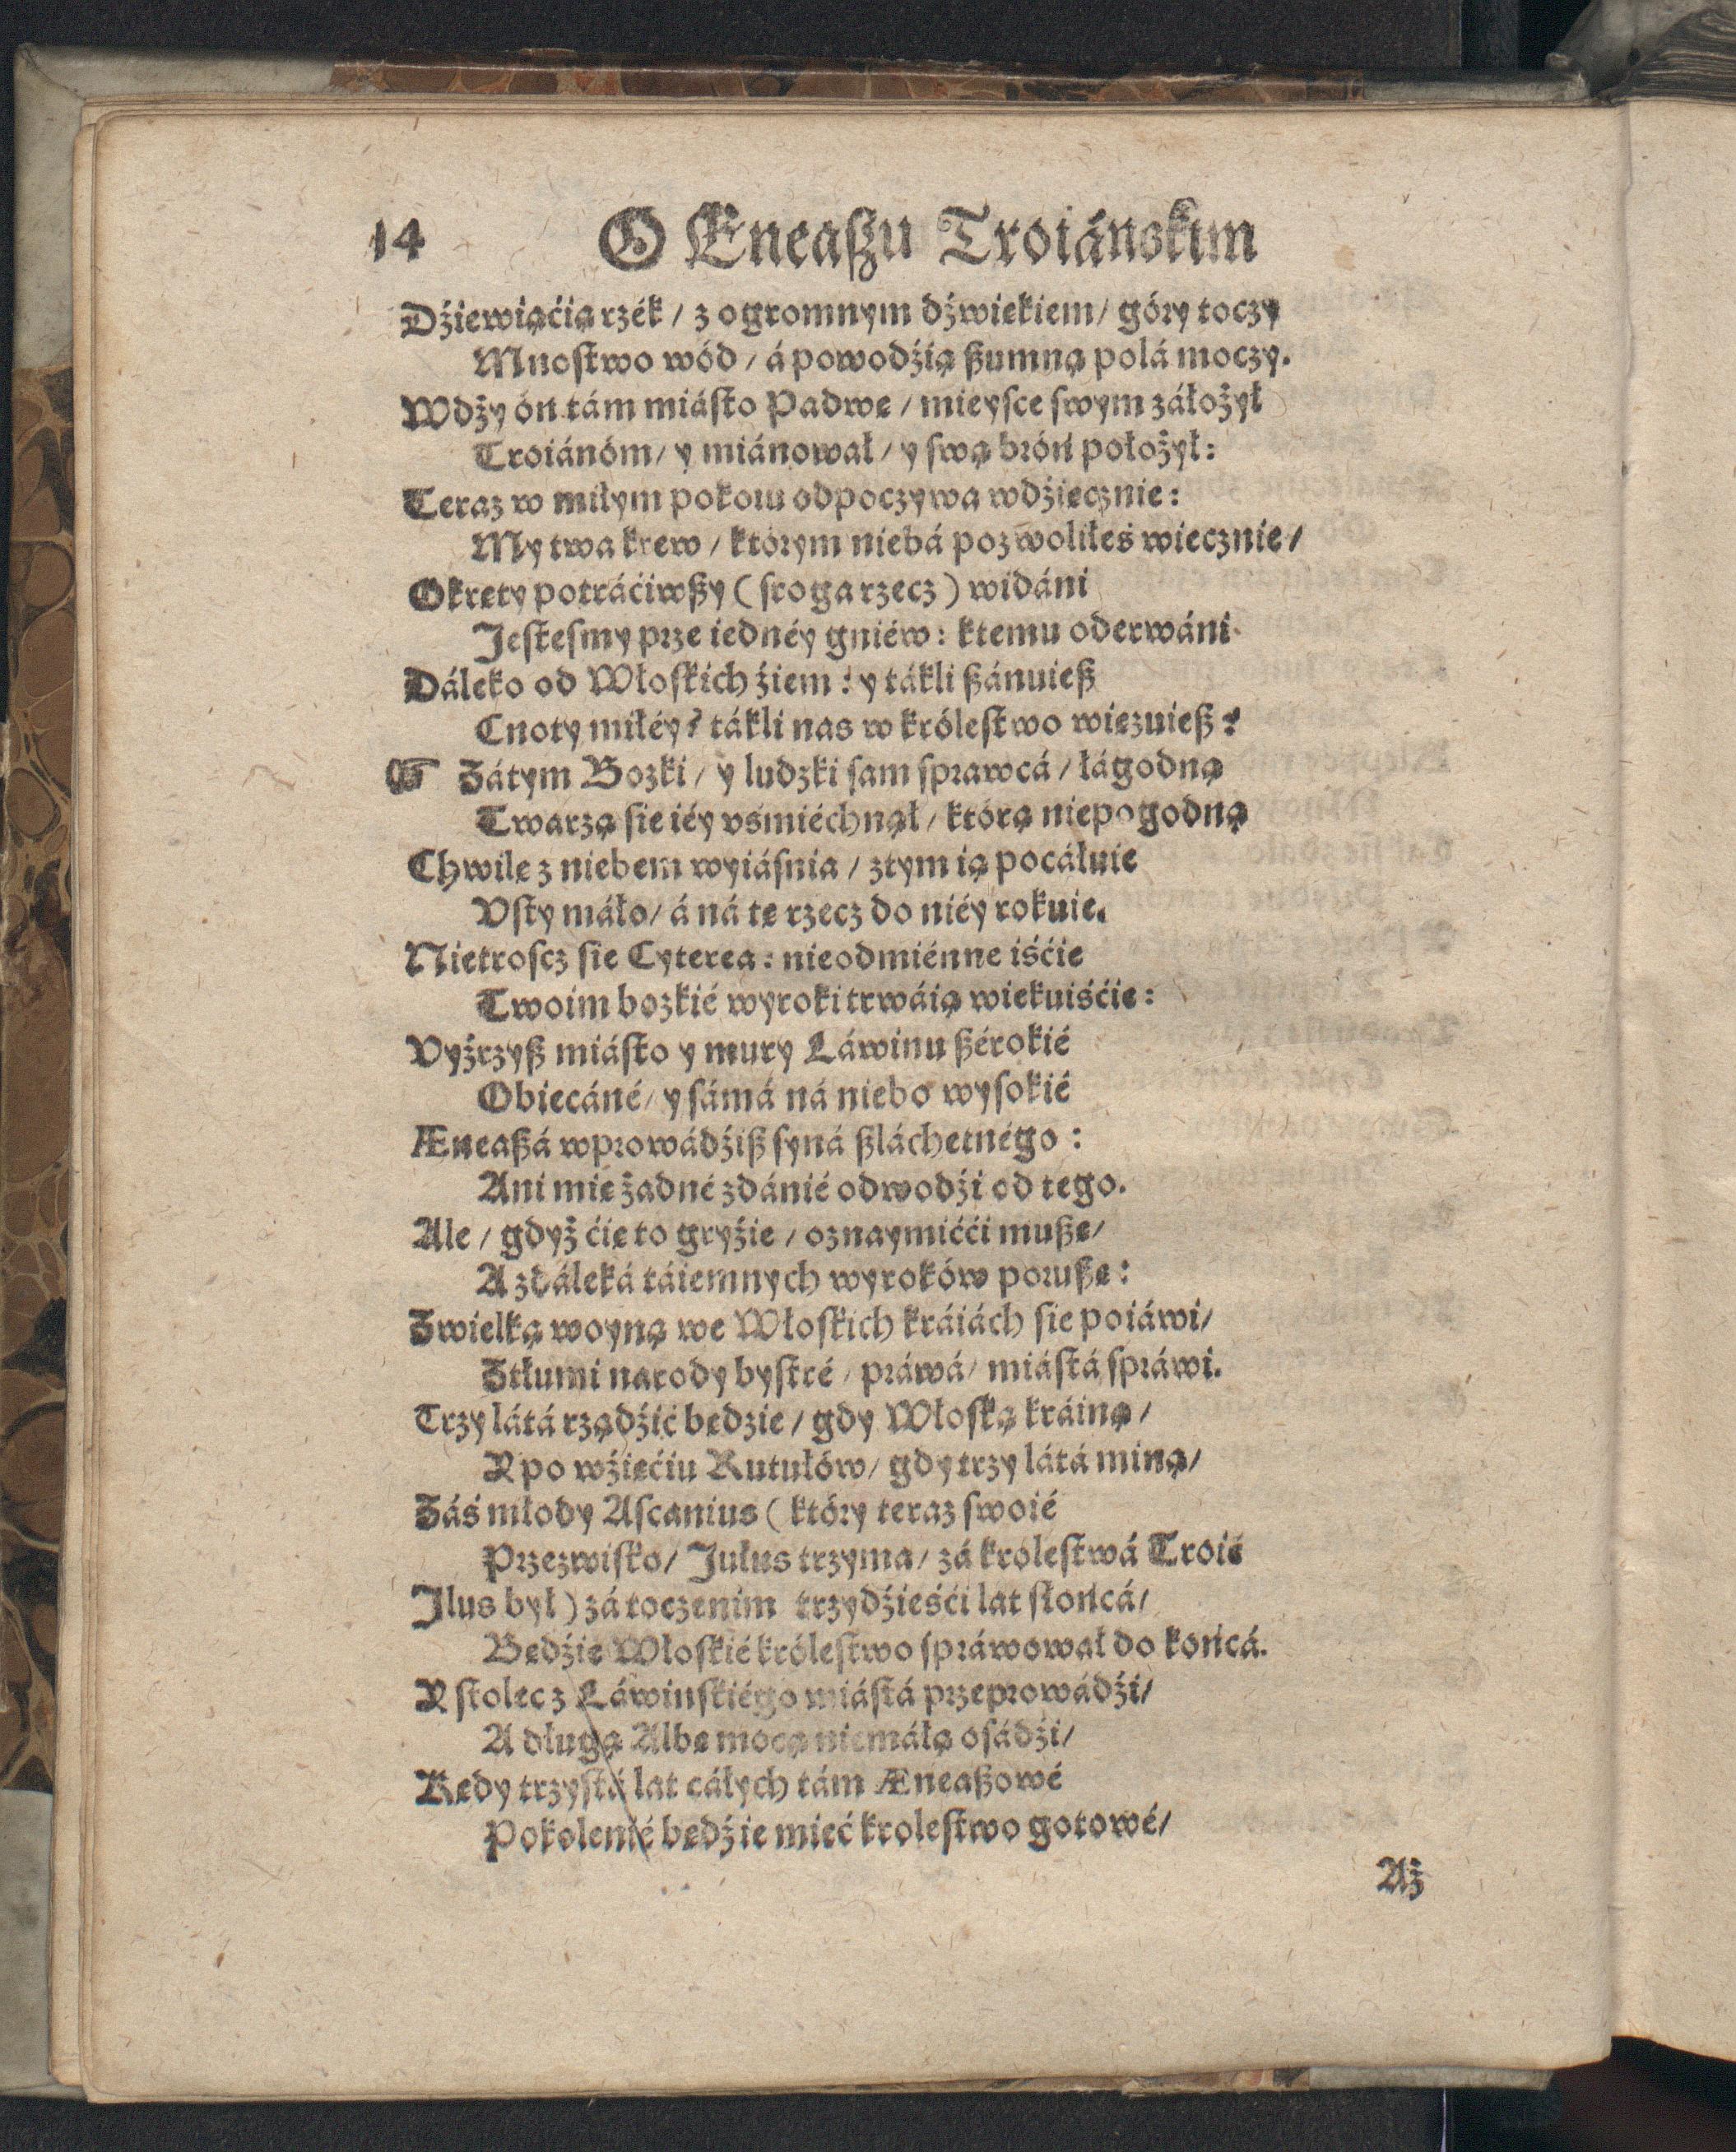 14 O Eneaſzu Troiánskim
Dźiewiąćią rzék / z ogromnym dźwiękiem / góry toczy
Mnoſtwo wód / á powodźią ßumną polá moczy.
Wdży ón tám miáſto Padwę / mieyſce ſwym záłożył
Troiánóm / y miánował / y ſwą bróń położył:
Teraz w miłym pokoiu odpoczywa wdźięcznie:
My twa krew / którym niebá pozwoliłeś wiecznie /
Okręty potráćiwßy ( ſroga rzecz ) widáni
Jeſteſmy prze iednéy gniéw: ktemu oderwáni
Dáleko od Włoſkich źiem: y tákli ßánuieß
Cnoty miłéy? tákli nas w króleſtwo więzuieß?
☞ Zátym Bozki / y ludzki ſam ſprawcá / łágodną
Twarzą ſie iéy vśmiéchnął / którą niepogodną
Chwilę z niebem wyiáſnia / ztym ią pocáłuie
Vſty máło / á ná tę rzecz do niéy rokuie.
Nietroſcz ſie Cyterea: nieodmiénne iśćie
Twoim bozkié wyroki trwáią wiekuiśćie:
Vyźrzyß miáſto y mury Láwinu ßérokié
Obiecáné / y ſámá ná niebo wyſokié
Æneaßá wprowádźiß ſyná ßláchetnégo:
Ani mię żadné zdánié odwodźi od tego.
Ale / gdyż ćię to gryźie / oznaymićći mußę /
A zdáleká táiemnych wyroków porußę:
Zwielką woyną we Włoſkich kráiách ſie poiáwi /
Ztłumi narody byſtré / práwá / miáſtá ſpráwi.
Trzy látá rządźić będzie / gdy Włoſką kráiną /
Y po wźięćiu Rutułów / gdy trzy látá miną /
Záś młody Aſcanius ( który teraz ſwoié
Przezwiſko / Jułus trzyma / zá kroleſtwá Troié
Jlus był ) zá toczenim trzydźieśći lat słońcá /
Będźie Włoſkié króleſtwo ſpráwował do końcá.
Y ſtolec z Láwinſkiégo miáſtá przeprowádźi /
A długą Albę mocą niemáłą oſádźi /
Kędy trzyſtá lat cáłych tám Æneaßowé
Pokolenié będźie mieć kroleſtwo gotowé /
Aż